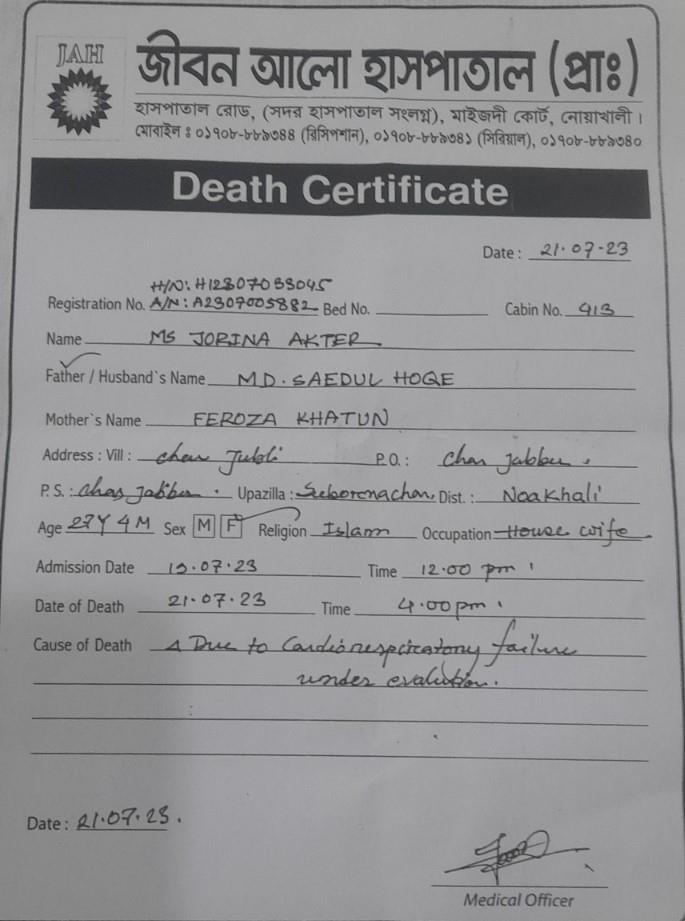 JAH
জীবন আলো হাসপাতাল (প্রাঃ)
হাসপাতাল রোড, (সদর হাসপাতাল সংলগ্ন), মাইজদী কোর্ট, নোয়াখালী।
মোবাইল ঃ ০১৭০৮-৮৮৯৩৪৪ (রিসিপশান), ০১৭০৮-৮৮৯৩৪১ (সিরিয়াল), ০১৭০৮-৮৮৯৩৪০
Death Certificate
Date : 21.07.23
H/N: H12307033045
Registration No. A/N: A2307005882 Bed No. Cabin No. 913
Name MS JORINA AKTER
Father / Husband`s Name MD. SAEDUL HOQE
Mother`s Name FEROZA KHATUN
Address : Vill : Char Jubli P.O. : Char Jabbar.
P.S. : Char Jabbar. Upazilla : Suborenachar, Dist. : NoaKhali
Age 27Y 4M Sex M F Religion Islam Occupation House wife
Admission Date 19.07.23 Time 12.00 pm
Date of Death 21.07.23 Time 4.00pm
Cause of Death Due to Cardiorespiratory failure
under evalution.
Date : 21.07.23.
Medical Officer